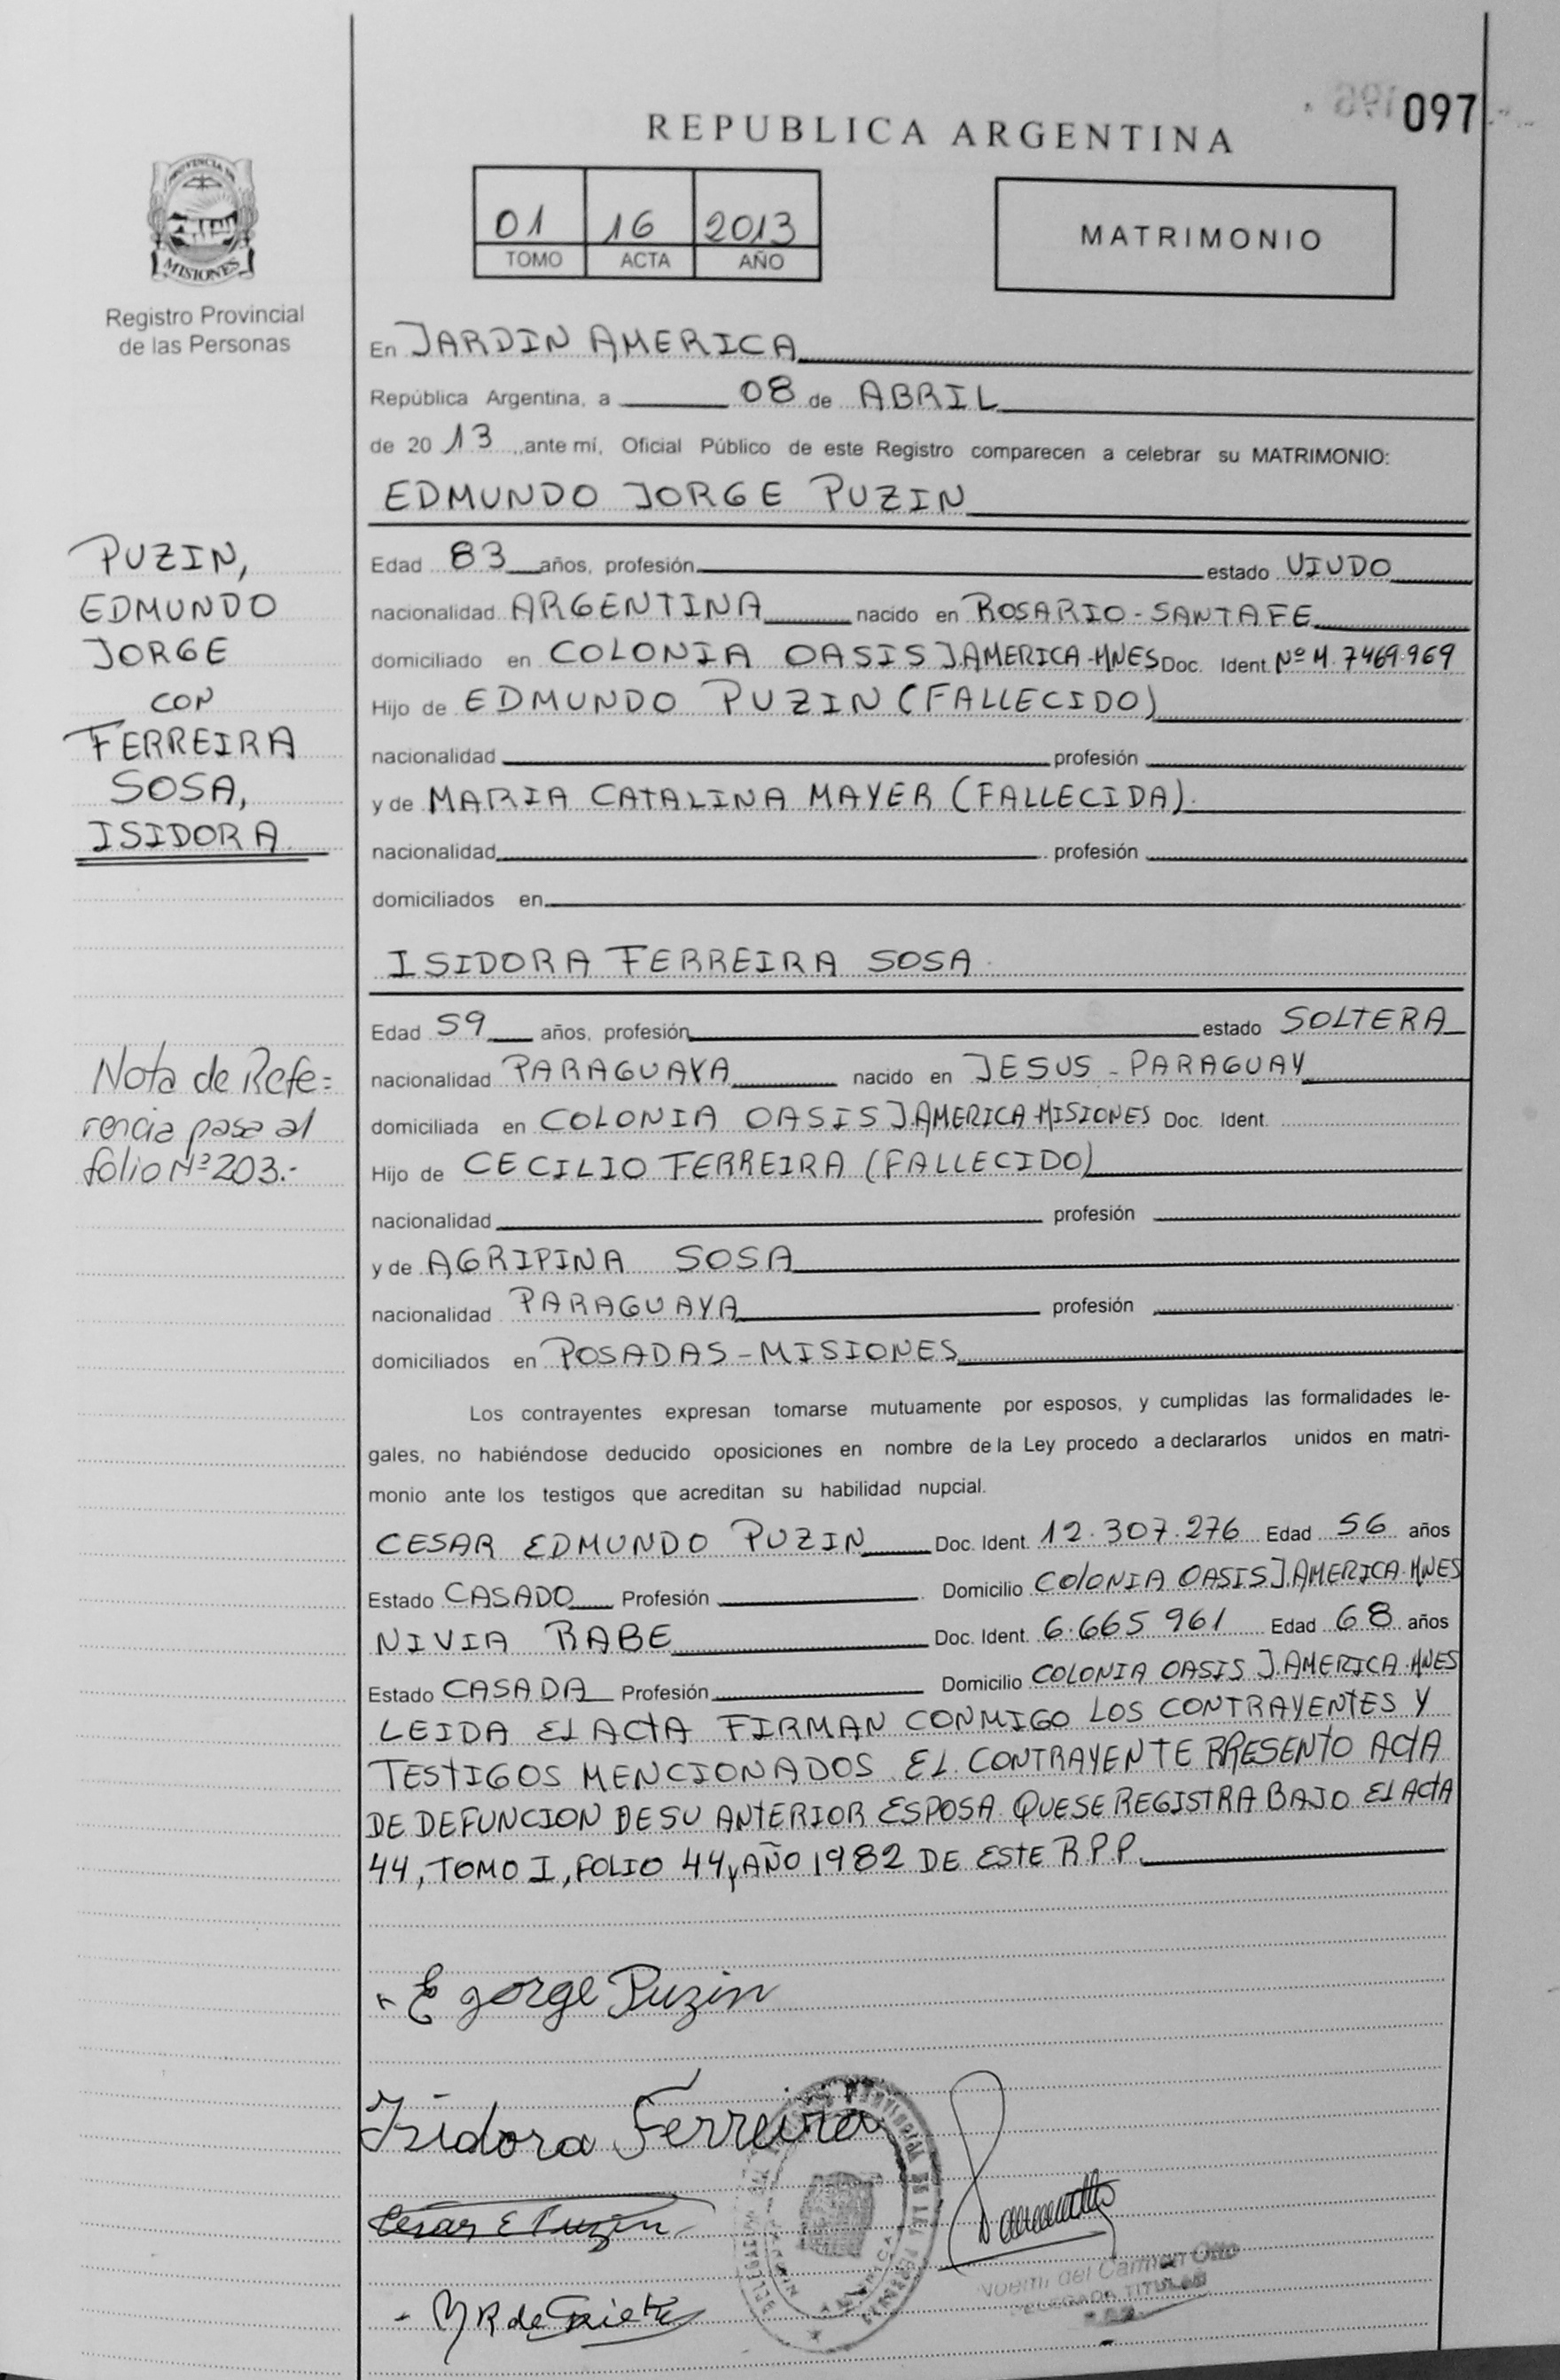 097
REPUBLICA ARGENTINA
PROVINCIA DE
MISIONES
Registro Provincial
de las Personas
01 16 2013
TOMO ACTA AÑO
MATRIMONIO
En JARDIN AMERICA
República Argentina, a 08 de ABRIL
de 20 13 ,ante mí, Oficial Público de este Registro comparecen a celebrar su MATRIMONIO:
EDMUNDO JORGE PUZIN
PUZIN,
EDMUNDO
JORGE
CON
FERREIRA
SOSA,
ISIDORA
Edad 83 años, profesión estado VIUDO
nacionalidad ARGENTINA nacido en ROSARIO-SANTA FE
domiciliado en COLONIA OASIS J.AMERICA-MNES Doc. Ident. Nº M. 7469.969
Hijo de EDMUNDO PUZIN (FALLECIDO)
nacionalidad profesión
y de MARIA CATALINA MAYER (FALLECIDA).
nacionalidad profesión
domiciliados en
ISIDORA FERREIRA SOSA
Edad 59 años, profesión estado SOLTERA
nacionalidad PARAGUAYA nacido en JESUS - PARAGUAY
domiciliada en COLONIA OASIS J.AMERICA-MISIONES Doc. Ident.
Hijo de CECILIO FERREIRA (FALLECIDO)
nacionalidad profesión
y de AGRIPINA SOSA
nacionalidad PARAGUAYA profesión
domiciliados en POSADAS-MISIONES
Nota de Refe=
rencia pasa al
folio Nº 203.-
Los contrayentes expresan tomarse mutuamente por esposos, y cumplidas las formalidades le-
gales, no habiéndose deducido oposiciones en nombre de la Ley procedo a declararlos unidos en matri-
monio ante los testigos que acreditan su habilidad nupcial.
CESAR EDMUNDO PUZIN Doc. Ident. 12.307.276 Edad 56 años
Estado CASADO Profesión Domicilio COLONIA OASIS J.AMERICA-MNES
NIVIA RABE Doc. Ident. 6.665 961 Edad 68 años
Estado CASADA Profesión Domicilio COLONIA OASIS J.AMERICA-MNES
LEIDA EL ACTA FIRMAN CONMIGO LOS CONTRAYENTES Y
TESTIGOS MENCIONADOS. EL CONTRAYENTE PRESENTO ACTA
DE DEFUNCION DE SU ANTERIOR ESPOSA QUE SE REGISTRA BAJO EL ACTA
44, TOMO I, FOLIO 44, AÑO 1982 DE ESTE R.P.P.
E Jorge Puzin
Isidora Ferreira
Cesar E Puzin
Noemi del Carmen Otto
DELEGADA TITULAR